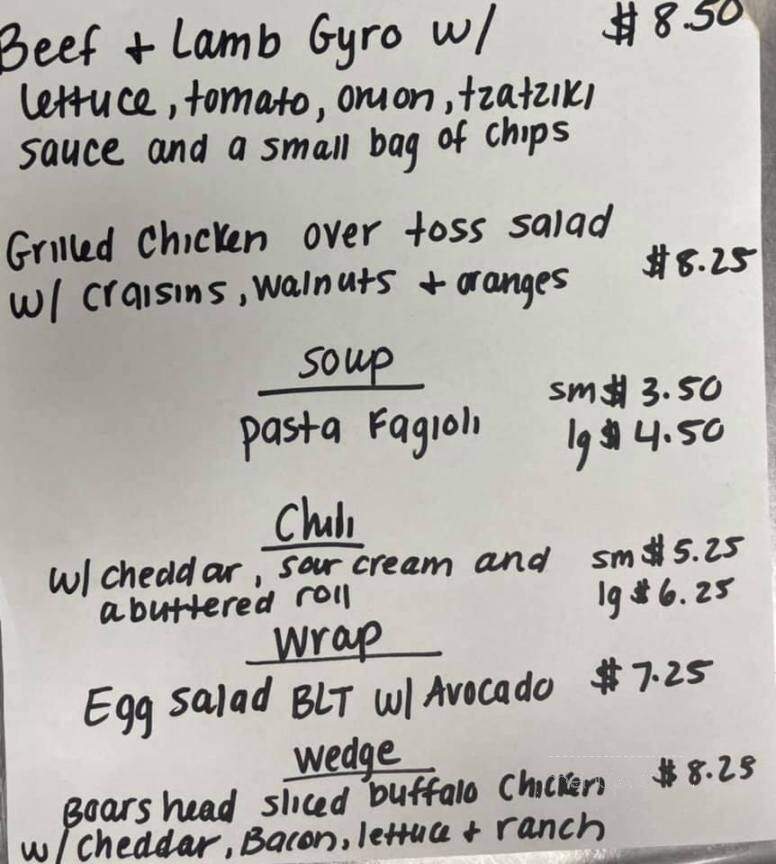 Beef + Lamb Gyro w/ $8.50
lettuce, tomato, onion, tzatziki
sauce and a small bag of chips
Grilled Chicken over toss salad
w/ craisins, walnuts + oranges $8.25
soup
pasta Fagioli sm $3.50
lg $4.50
Chili
w/ cheddar, sour cream and sm $5.25
a buttered roll lg $6.25
Wrap
Egg salad BLT w/ Avocado $7.25
wedge
Boars head sliced buffalo chicken $8.25
w/ cheddar, Bacon, lettuce + ranch